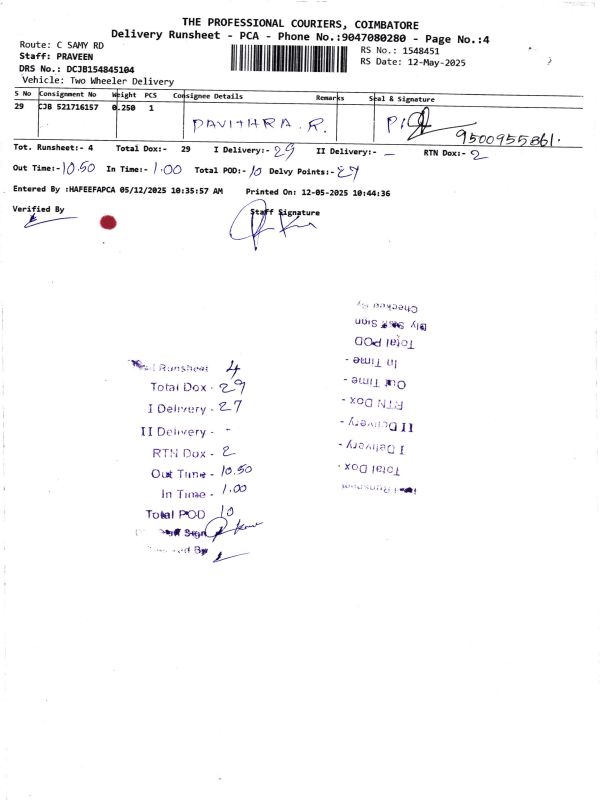 THE PROFESSIONAL COURIERS, COIMBATORE
Delivery Runsheet - PCA - Phone No.:9047080280 - Page No.:4
Route: C SAMY RD
RS No.: 1548451
Staff: PRAVEEN
RS Date: 12-May-2025
DRS No.: DCJB154845104
Vehicle: Two Wheeler Delivery
S No Consignment No Weight PCS Consignee Details Remarks Seal & Signature
29 CJB 521716157 0.250 1
PAVITHRA. R.
9500955861.
Tot. Runsheet:- 4 Total Dox:- 29 I Delivery:- 29 II Delivery:- - RTN Dox:- 2
Out Time:- 10.50 In Time:- 1.00 Total POD:- 10 Delvy Points:- 27
Entered By :HAFEEFAPCA 05/12/2025 10:35:57 AM Printed On: 12-05-2025 10:44:36
Verified By
Staff Signature
Runsheet 4
Total Dox - 29
I Delivery - 27
II Delivery - -
RTN Dox - 2
Out Time - 10.50
In Time - 1.00
Total POD 10
Sign
By
Checked By
Dly Sign
Total POD
In Time -
Out Time -
RTN Dox -
II Delivery -
I Delivery -
Total Dox -
Runsheet